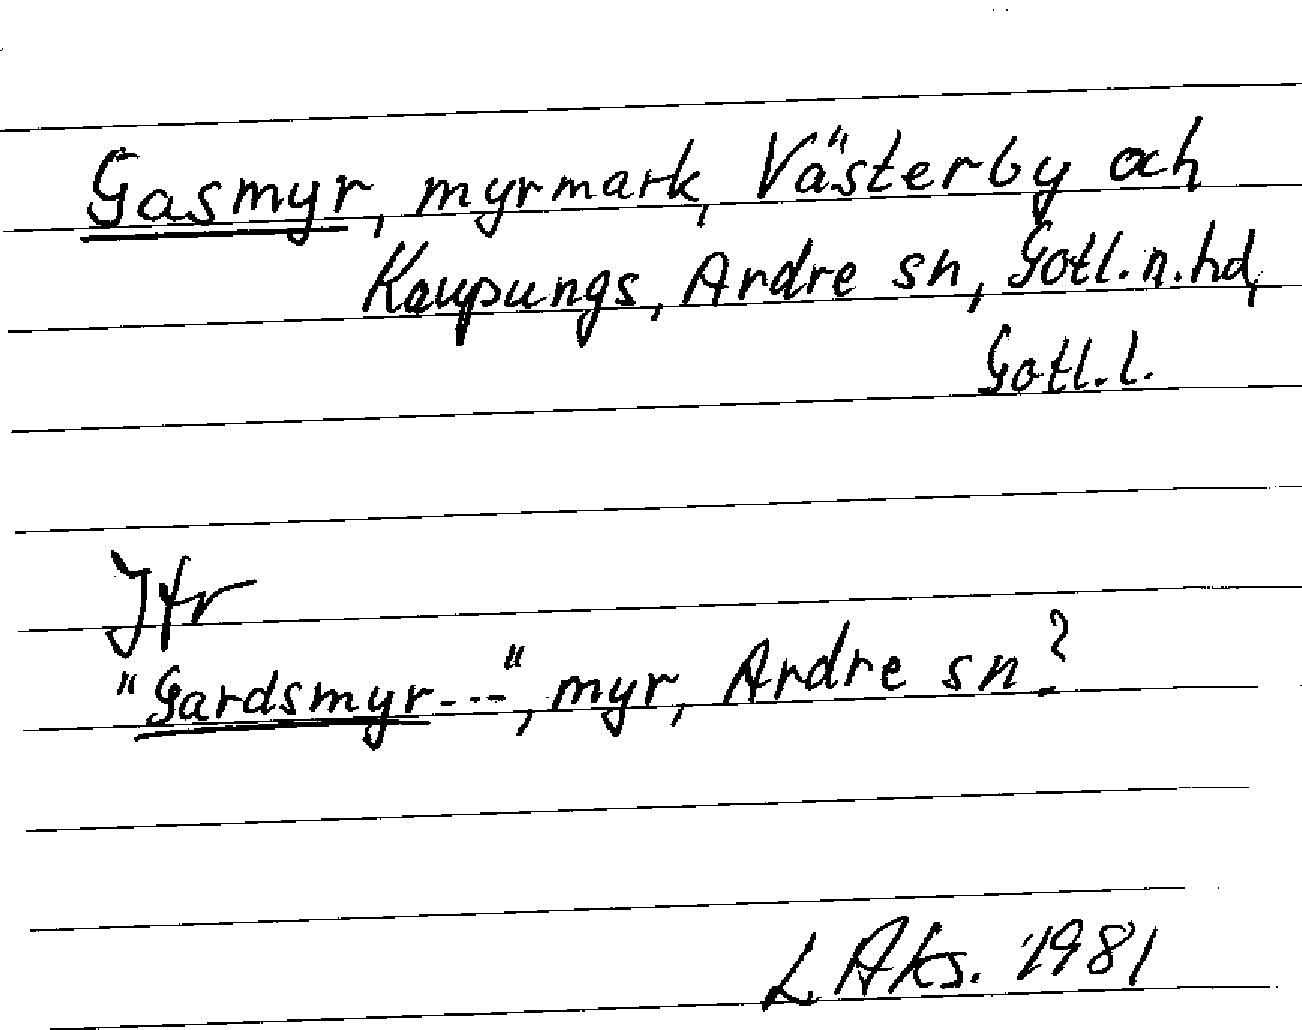 Gasmyr, myrmark, Västerby och
Kaupungs, Ardre sn, Gotl. n. hd,
Gotl. l.
Jfr
"Gardsmyr---", myr, Ardre sn?
L Aks. 1981